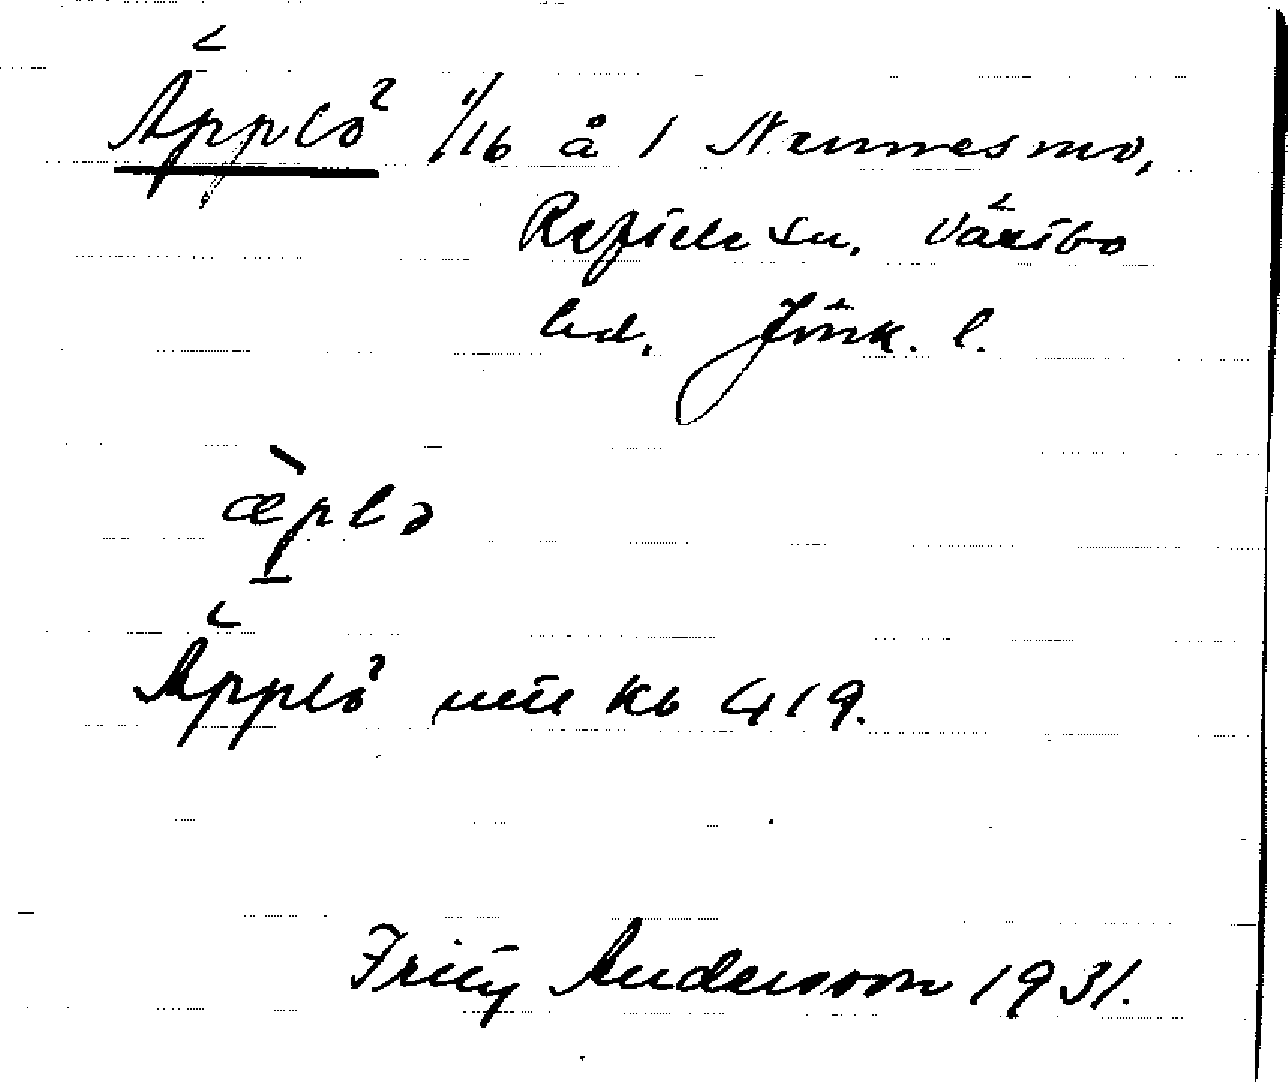 Äpplö 1/16 å 1 Nennesmo,
Reftele sn. Västbo
hd. Jönk. l.
æplə
Äpplö utt kb 419.
Fritz Andersson 1931.